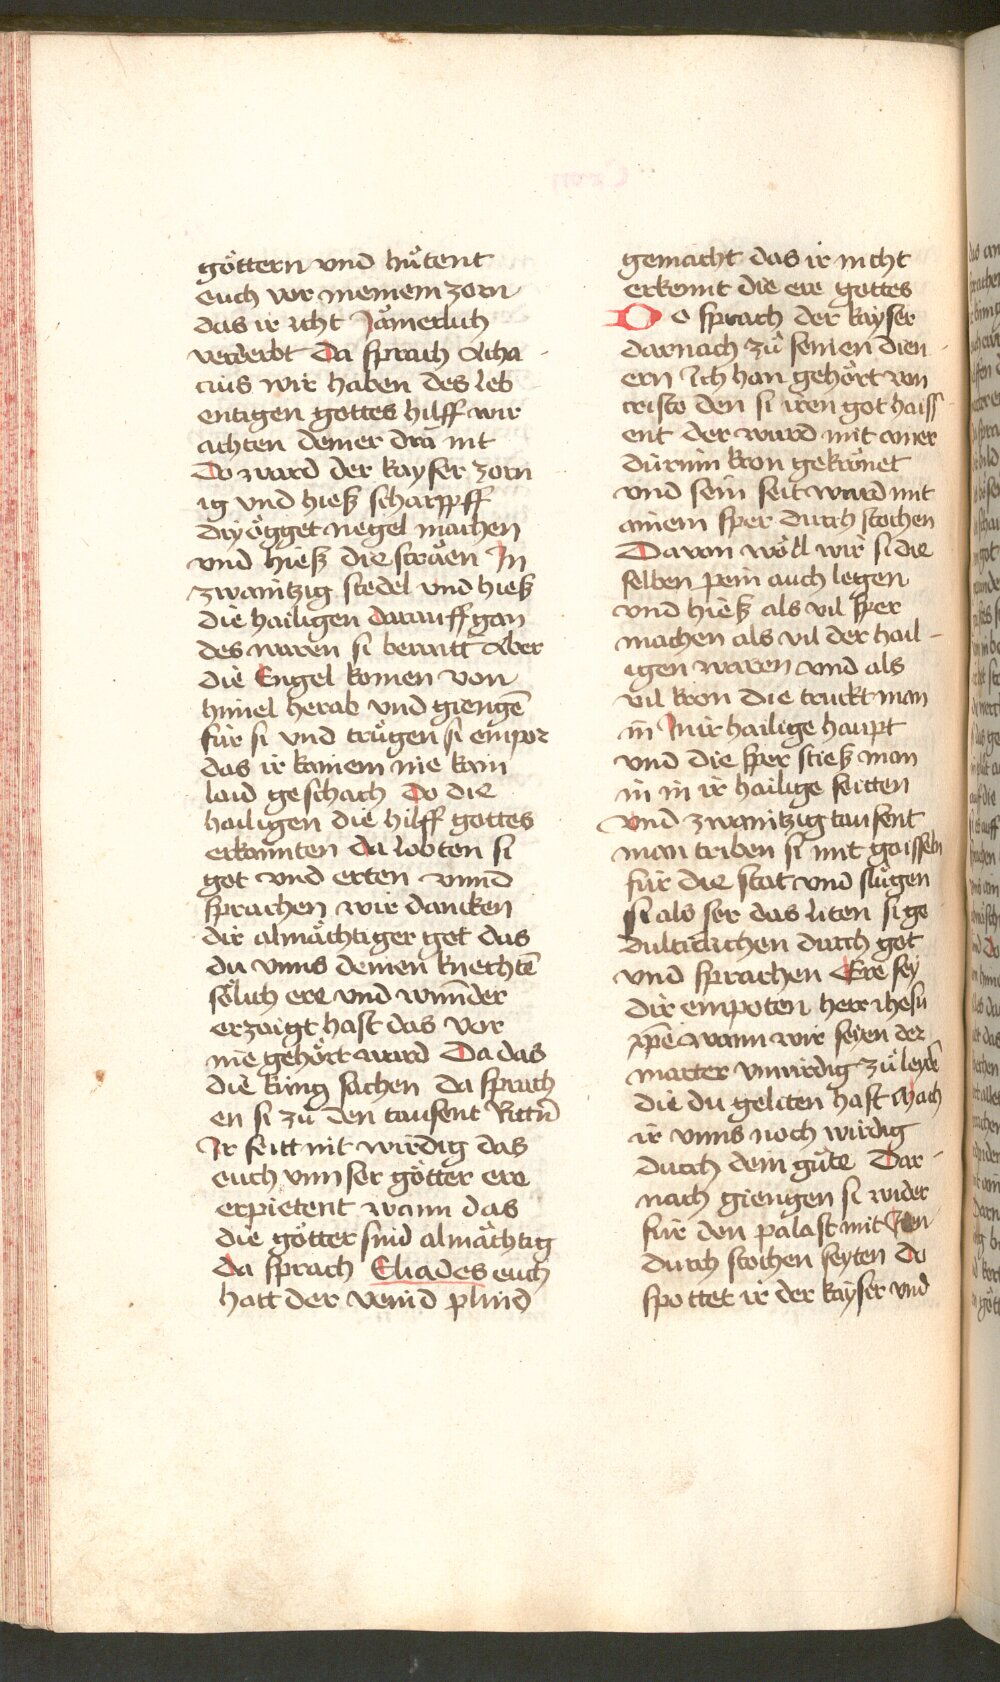 göttern vnd hu̓tent
euch vor meinem zorn
das ir icht Jämerlich
verderbt Da sprach Acha
cius wir haben des leb
entigen gottes hilff wir
achten deiner drä nit
Do ward der kayser zorn
ig vnd hieß scharppff
dryögget negel machen
vnd hieß die sträen In
zwaintzig stedel vnd hieß
die hailigen darauff gan
des waren si beraitt Aber
die Engel komen von
himel herab vnd giengē
für si vnd trügen si empor
das ir kainem nie kain
laid geschach Do die
hailigen die hilff gottes
erkannten da lobten si
got vnd erten vnnd
sprachen wir dancken
dir almächtiger got das
du vnns deinen knechtē
sölich ere vnd wunder
erzaigt hast das vor
nie gehört ward Da das
die küng sachen da sprach
en si zü den tausent Rittn̄
Ir seitt nit wirdig das
euch vnnser götter ere
erpietent wann das
die götter sind almächtig
Da sprach Eliades euch
hatt der veind plind
gemacht das ir nicht
erkennt die ere gottes
Do sprach der kayser
darnach zü seinen dien
ern Ich han gehört von
cristo den si iren got haiss
ent der ward mit ainer
dürnin kron gekrönet
vnd sein seit ward mit
ainem sper durch stochen
Dauon wöll wir si die
selben pein auch legen
vnd hieß als vil sper
machen als vil der hail
igen waren vnd als
vil kron die truckt man
in In ir hailige haupt
vnd die sper stieß man
in in ir hailige seitten
vnd zwaintzig tausent
man triben si mit gaisseln
für die stat vnd slügen
si als ser das liten si ge
dulticlichen durch got
vnd sprachen Ere sey
dir empoten herr ihesu
xp̄e wann wir seyen der
marter vnwirdig zü leydē
die du geliten hast Mach
ir vnns noch wirdig
durch dein güte Dar
nach giengen si wider
für den palast mit Iren
durch stochen seyten Do
spottet ir der kayser vnd